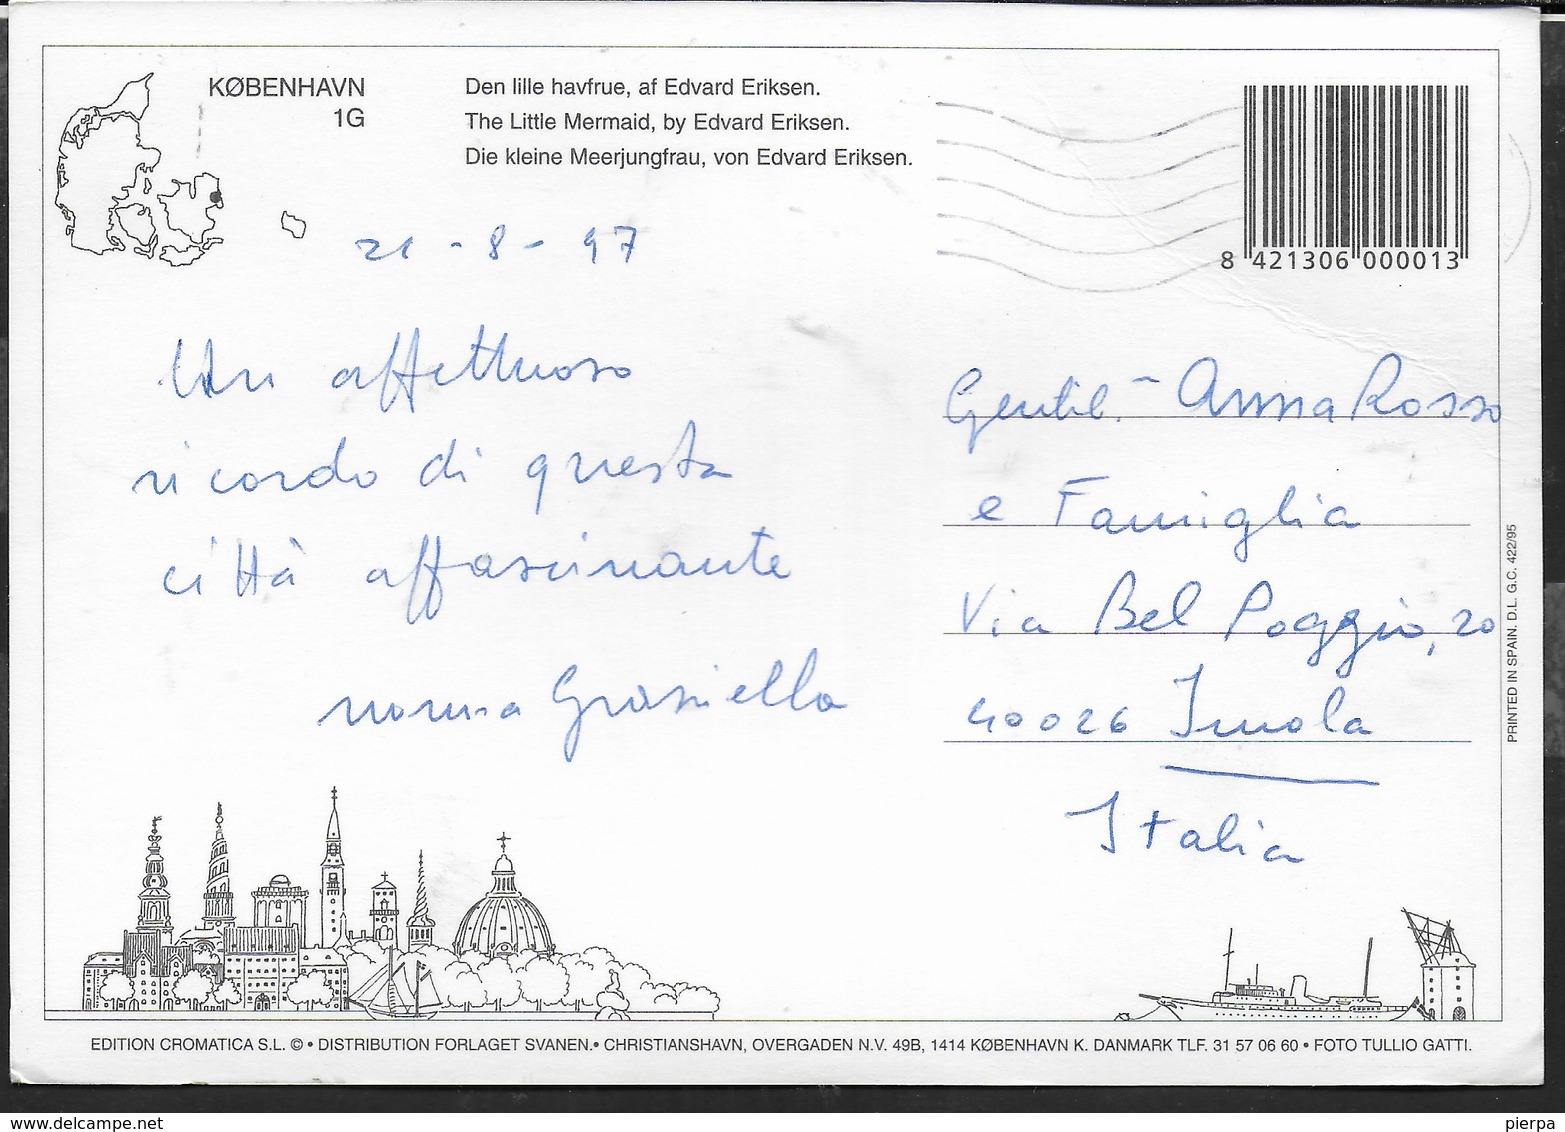 KØBENHAVN
1G
Den lille havfrue, af Edvard Eriksen.
The Little Mermaid, by Edvard Eriksen.
Die kleine Meerjungfrau, von Edvard Eriksen.
8 421306 000013
21-8-97
Un affettuoso
ricordo di questa
città affascinante
nonna Graziella
Gentil. Anna Rosso
e Famiglia
Via Bel Poggio, 20
40026 Imola
Italia
PRINTED IN SPAIN. D.L. G.C. 422/95
EDITION CROMATICA S.L. © • DISTRIBUTION FORLAGET SVANEN.• CHRISTIANSHAVN, OVERGADEN N.V. 49B, 1414 KØBENHAVN K. DANMARK TLF. 31 57 06 60 • FOTO TULLIO GATTI.
www.delcampe.net
pierpa